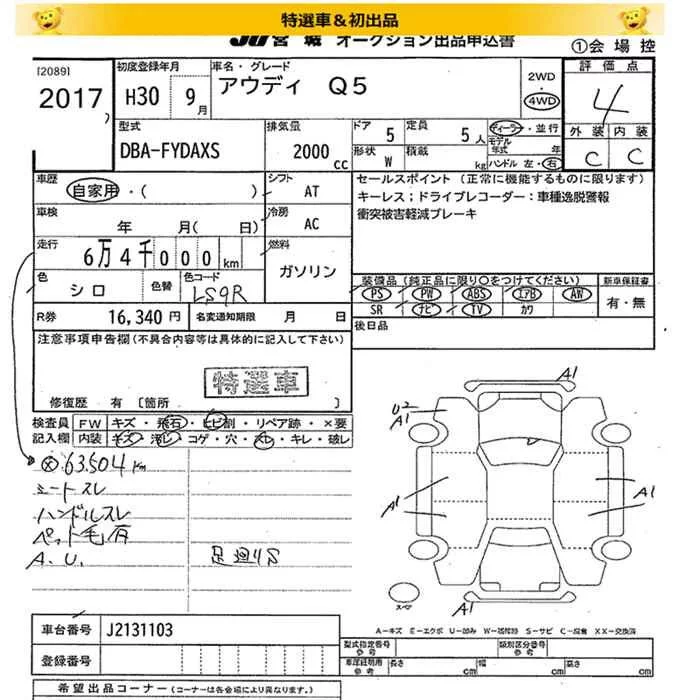 特選車＆初出品
JU宮城 オークション出品申込書
①会場控
[2089]
2017
初度登録年月
H30 9月
車名・グレード
アウディ Q5
2WD
・
4WD
評価点
4
外装 内装
C C
型式
DBA-FYDAXS
排気量
2000 cc
ドア 5
定員 5人
形状 W
積載 kg
ディーラー・並行
モデル年式 年
ハンドル 左・右
車歴
自家用・( )
シフト
AT
セールスポイント (正常に機能するものに限ります)
キーレス；ドライブレコーダー：車種逸脱警報
衝突被害軽減ブレーキ
車検
年 月( 日)
冷房
AC
走行
6万4千000km
燃料
ガソリン
色
シロ
色替
色コード
LS9R
装備品 (純正品に限り○をつけてください)
新車保証書
PS PW ABS エアB AW
有・無
SR ナビ TV カワ
R券
16,340円
名変通知期限 月 日
後日品
注意事項申告欄(不具合内容等は具体的に記入して下さい)
特選車
修復歴 有 〔箇所
検査員
記入欄
FW キズ・飛石・ヒビ割・リペア跡・×要
内装 キズ・汚レ・コゲ・穴・スレ・キレ・破レ
63.504km
シートスレ
ハンドルスレ
ペット毛有
A.U.
足廻りS
A1
U2
A1
A1
A1
A1
スペア
A－キズ E－エクボ U－凹み W－補修跡 S－サビ C－腐食 XX－交換済
車台番号
J2131103
登録番号
型式指定番号
参考
類別区分番号
参考
車庫証明用
参考
長さ cm
幅 cm
高さ cm
希望出品コーナー (コーナーは各会場により異なります。)